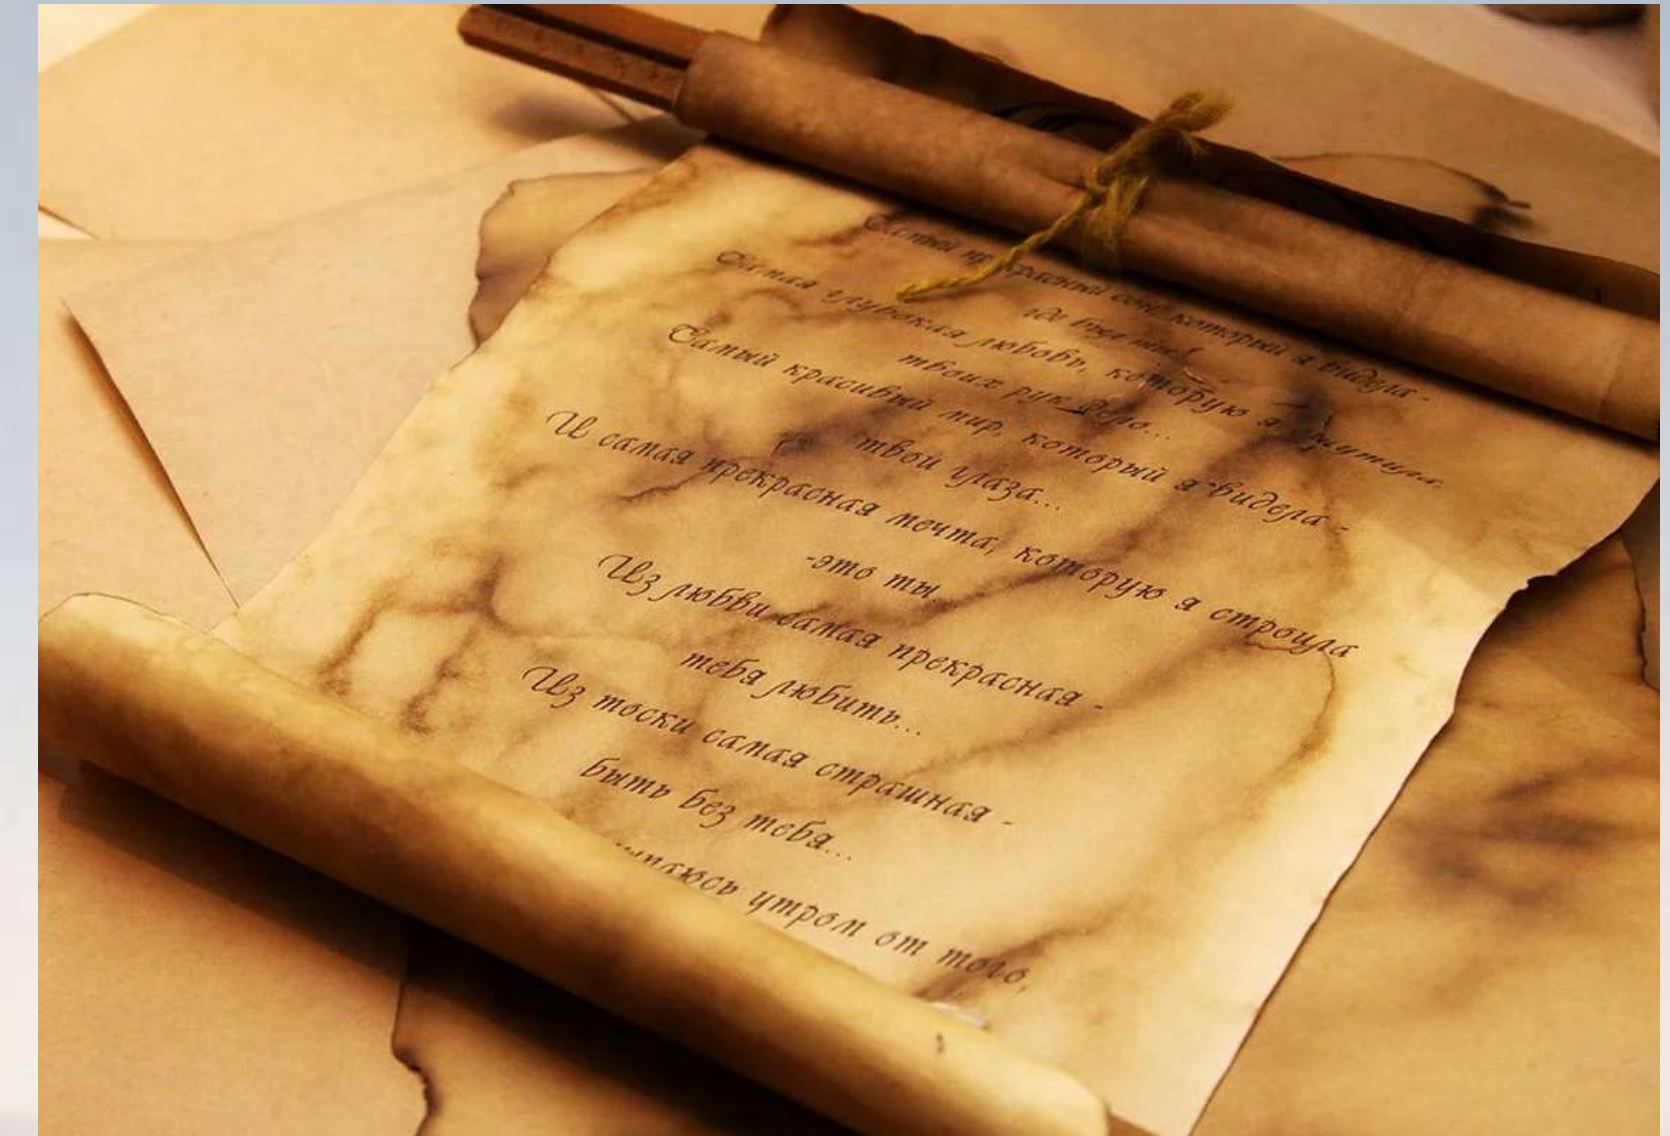 Самый прекрасный сон, который я видела -
где был ты!
Самая глубокая любовь, которую я
твоих рук дело...
Самый красивый мир, который я видела -
твои глаза...
И самая прекрасная мечта, которую я строила
-это ты
Из любви самая прекрасная -
тебя любить...
Из тоски самая страшная -
быть без тебя...
утром от того,